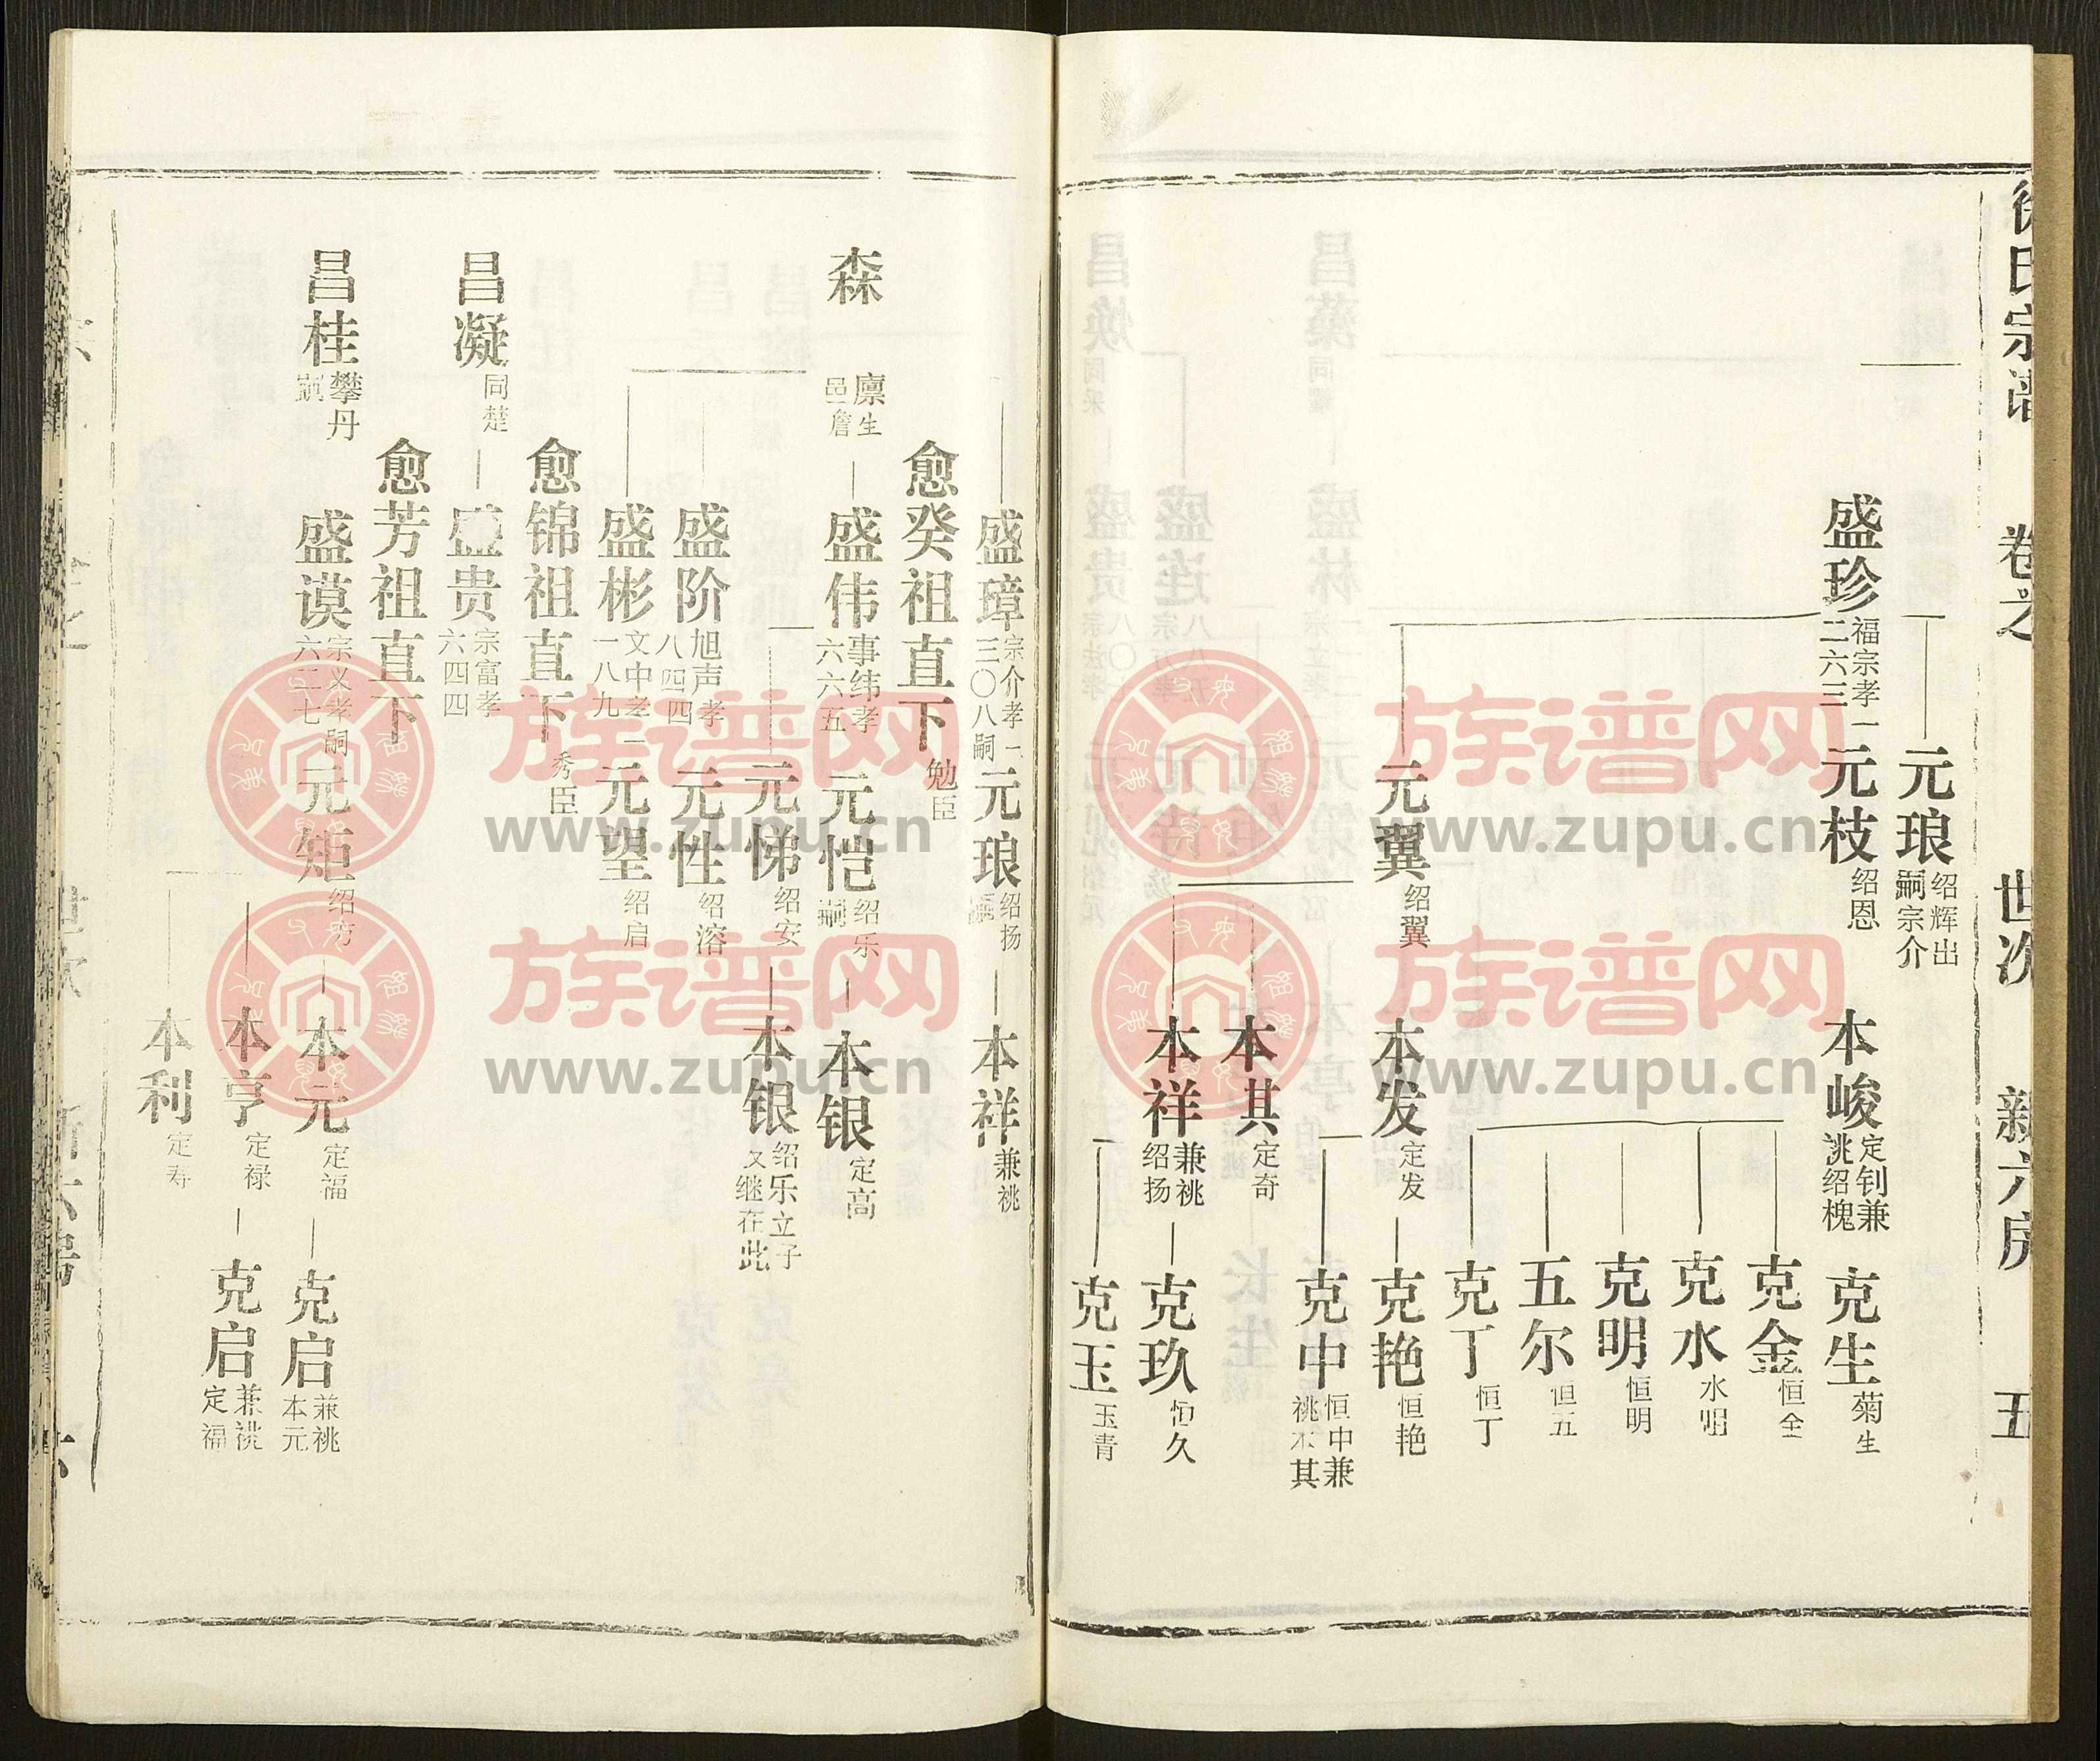 徐氏宗谱　卷之　世次　新六房　五
元琅 绍辉出嗣宗介
盛珍 福宗孝一二六三
元枝 绍恩
本峻 定钊兼祧绍槐
克生 菊生
克金 恒金
克水
克明 恒明
五尔 恒五
克丁 恒丁
元翼 绍翼
本发 定发
克艳 恒艳
克中 恒中兼祧本其
本其 定奇
本祥 兼祧绍扬
克玖 恒久
克玉 玉青
盛璋 宗介孝一三〇八嗣
元琅 绍扬嗣
本祥 兼祧
愈癸祖直下 勉臣
森 廪生邑詹
盛伟 事纬孝六六五
元恺 绍乐嗣
本银 定高
元悌 绍安
本银 绍乐立子又继在此
盛阶 旭声孝八四四
元性 绍溶
盛彬 文中孝一一八九
元望 绍启
愈锦祖直下 秀臣
昌凝 同楚
盛贵 宗富孝六四四
愈芳祖直下
昌桂 攀丹嗣
盛谟 宗义孝六二七嗣
元矩 绍方
本元 定福
克启 兼祧本元
本亨 定禄
克启 兼祧定福
本利 定寿
族谱网
www.zupu.cn
族谱网
www.zupu.cn
族谱网
www.zupu.cn
族谱网
www.zupu.cn